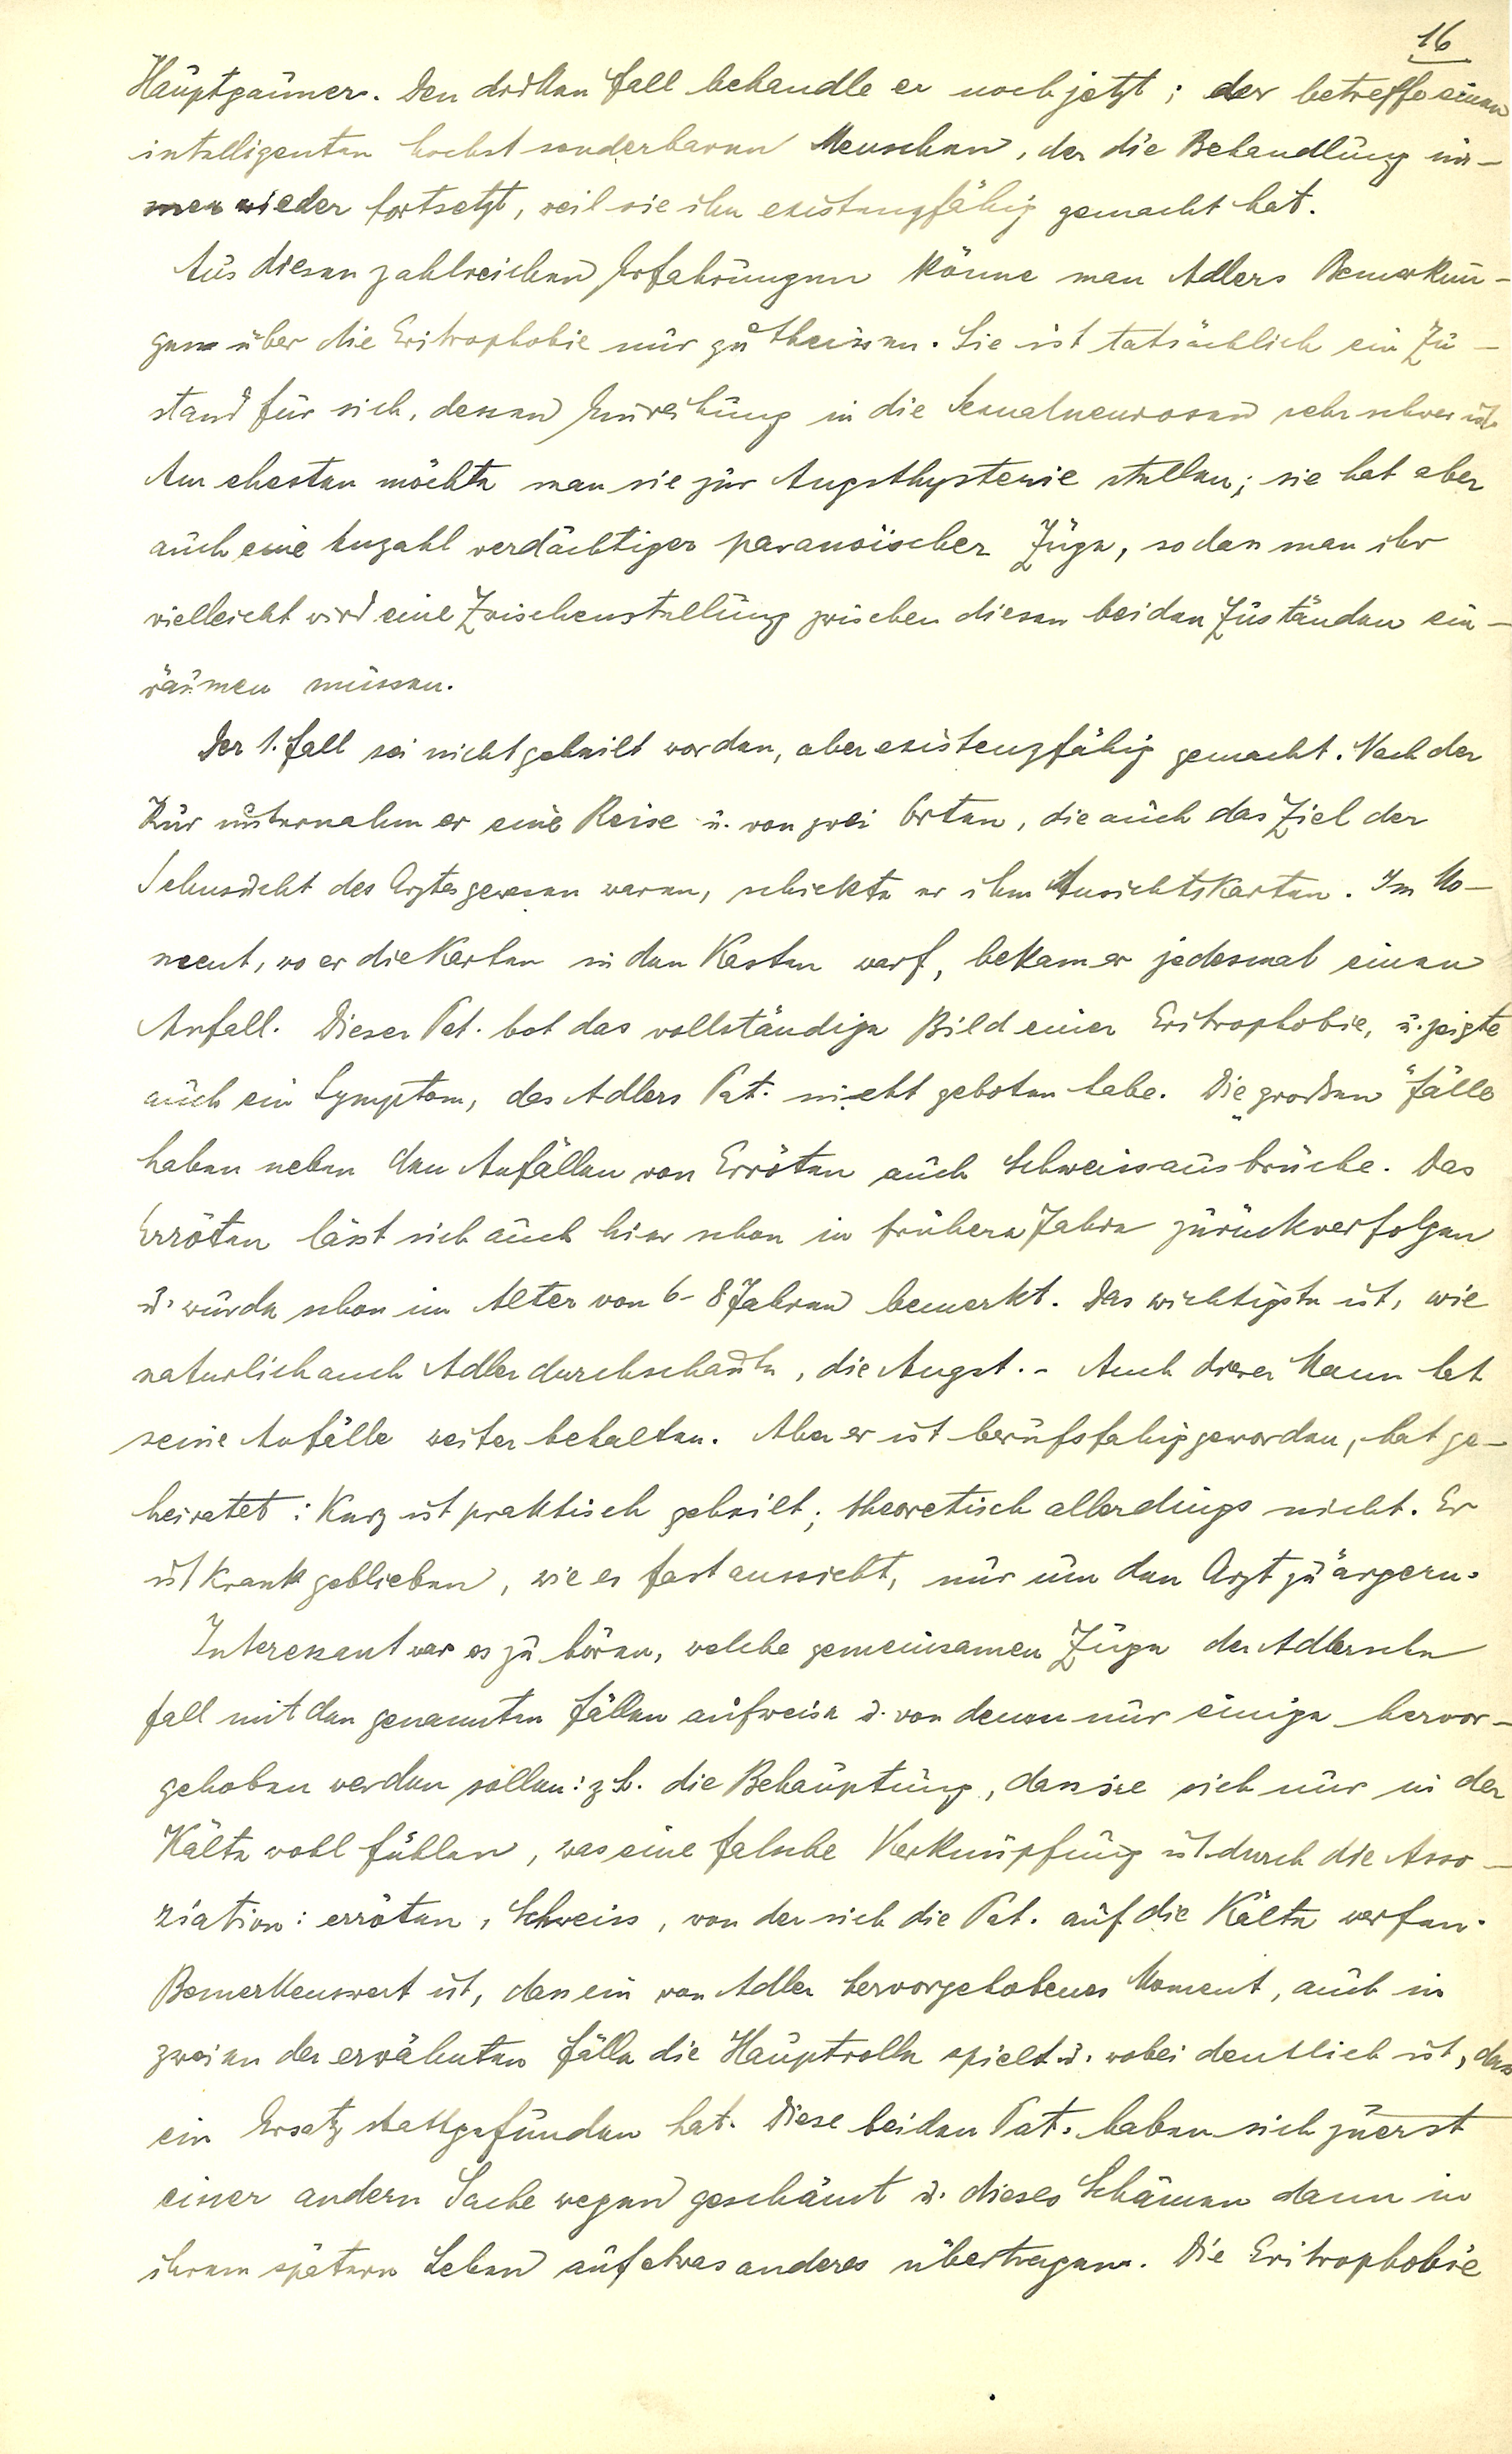 16
Hauptgauner. Den dritten Fall behandle er noch jetzt; der betreffe einen
intelligenten höchst sonderbaren Menschen, der die Behandlung im-
mer wieder fortsetzt, weil sie ihn existenzfähig gemacht hat.
Aus diesen zahlreichen Erfahrungen könne man Adlers Bemerkun-
gen über die Eritrophobie nur gutheissen. Sie ist tatsächlich ein Zu-
stand für sich, dessen Einreihung in die Sexualneurosen sehr schwer ist.
Am ehesten möchte man sie zur Angsthysterie stellen; sie hat aber
auch eine Anzahl verdächtiger paranoischer Züge, so dass man ihr
vielleicht wird eine Zwischenstellung zwischen diesen beiden Zuständen ein-
räumen müssen.
Der 1. Fall sei nicht geheilt worden, aber existenzfähig gemacht. Nach der
Kur unternahm er eine Reise u. von zwei Orten, die auch das Ziel der
Sehnsucht des Arztes gewesen waren, schickte er ihm Ansichtskarten. Im Mo-
ment, wo er die Karten in den Kasten warf, bekam er jedesmal einen
Anfall. Dieser Pat. bot das vollständige Bild einer Eritrophobie, u. zeigte
auch ein Symptom, das Adlers Pat. nicht geboten habe. Die „großen“ Fälle
haben neben den Anfällen von Erröten auch Schweissausbrüche. Das
Erröten lässt sich auch hier schon in frühere Jahre zurückverfolgen
u. wurde schon im Alter von 6-8 Jahren bemerkt. Das wichtigste ist, wie
natürlich auch Adler durchschaute, die Angst. - Auch dieser Mann hat
seine Anfälle weiter behalten. Aber er ist berufsfähig geworden, hat ge-
heiratet: Kurz ist praktisch geheilt; theoretisch allerdings nicht. Er
ist krank geblieben, wie es fast aussieht, nur um den Arzt zu ärgern.
Interessant war es zu hören, welche gemeinsamen Züge der Adlersche
Fall mit den genannten Fällen aufweise u. von denen nur einige hervor-
gehoben werden sollen: z.b. die Behauptung, dass sie sich nur in der
Kälte wohl fühlen, was eine falsche Verknüpfung ist durch die Asso-
ziation: erröten, Schweiss, von der sich die Pat. auf die Kälte werfen.
Bemerkenswert ist, dass ein von Adler hervorgehobenes Moment, auch in
zweien der erwähnten Fälle die Hauptrolle spielt u. wobei deutlich ist, dass
ein Ersatz stattgefunden hat. Diese beiden Pat. haben sich zuerst
einer andern Sache wegen geschämt u. dieses Schämen dann in
ihrem spätern Leben auf etwas anderes übertragen. Die Eritrophobie